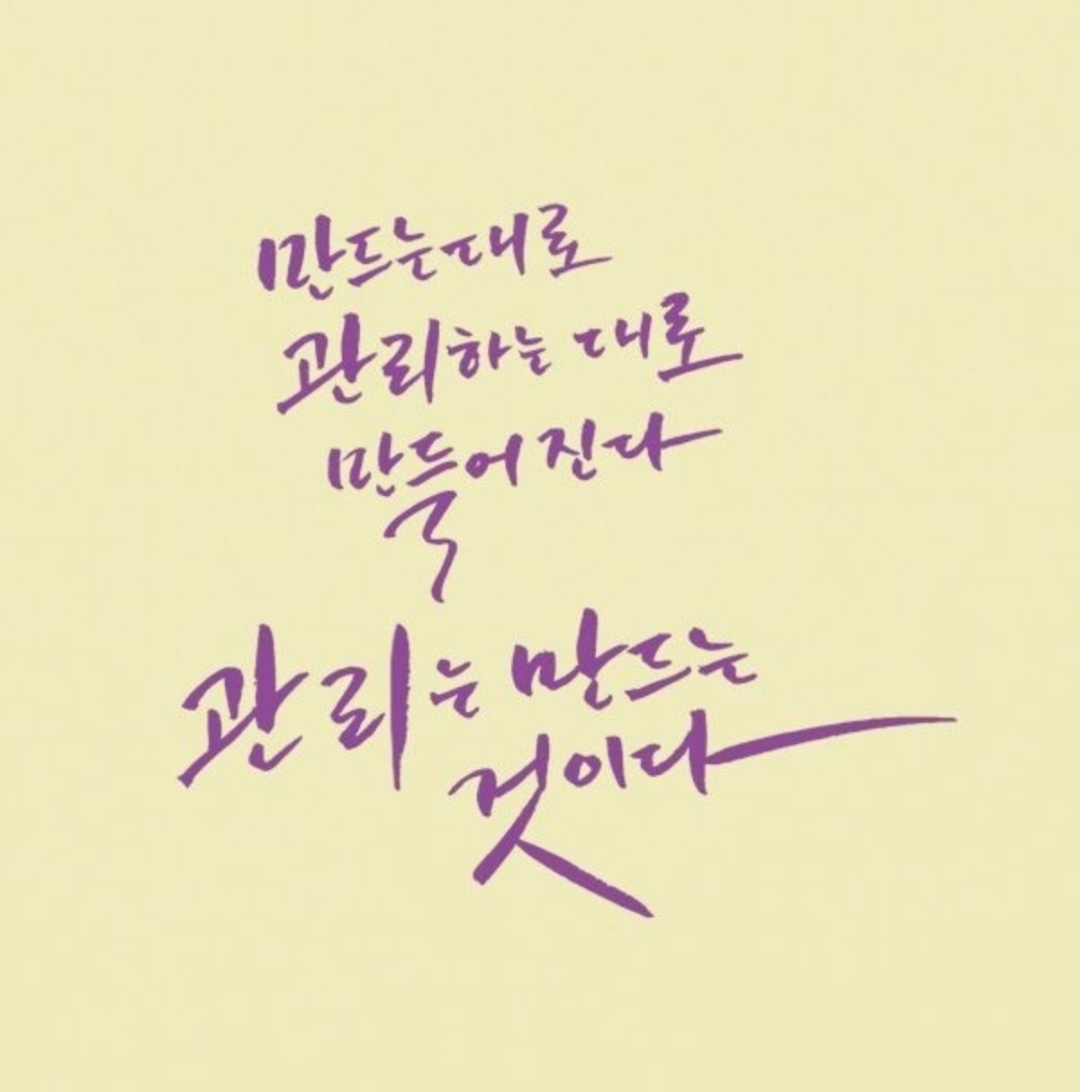 만드는대로
관리하는 대로
만들어 진다
관리는 만드는
것이다